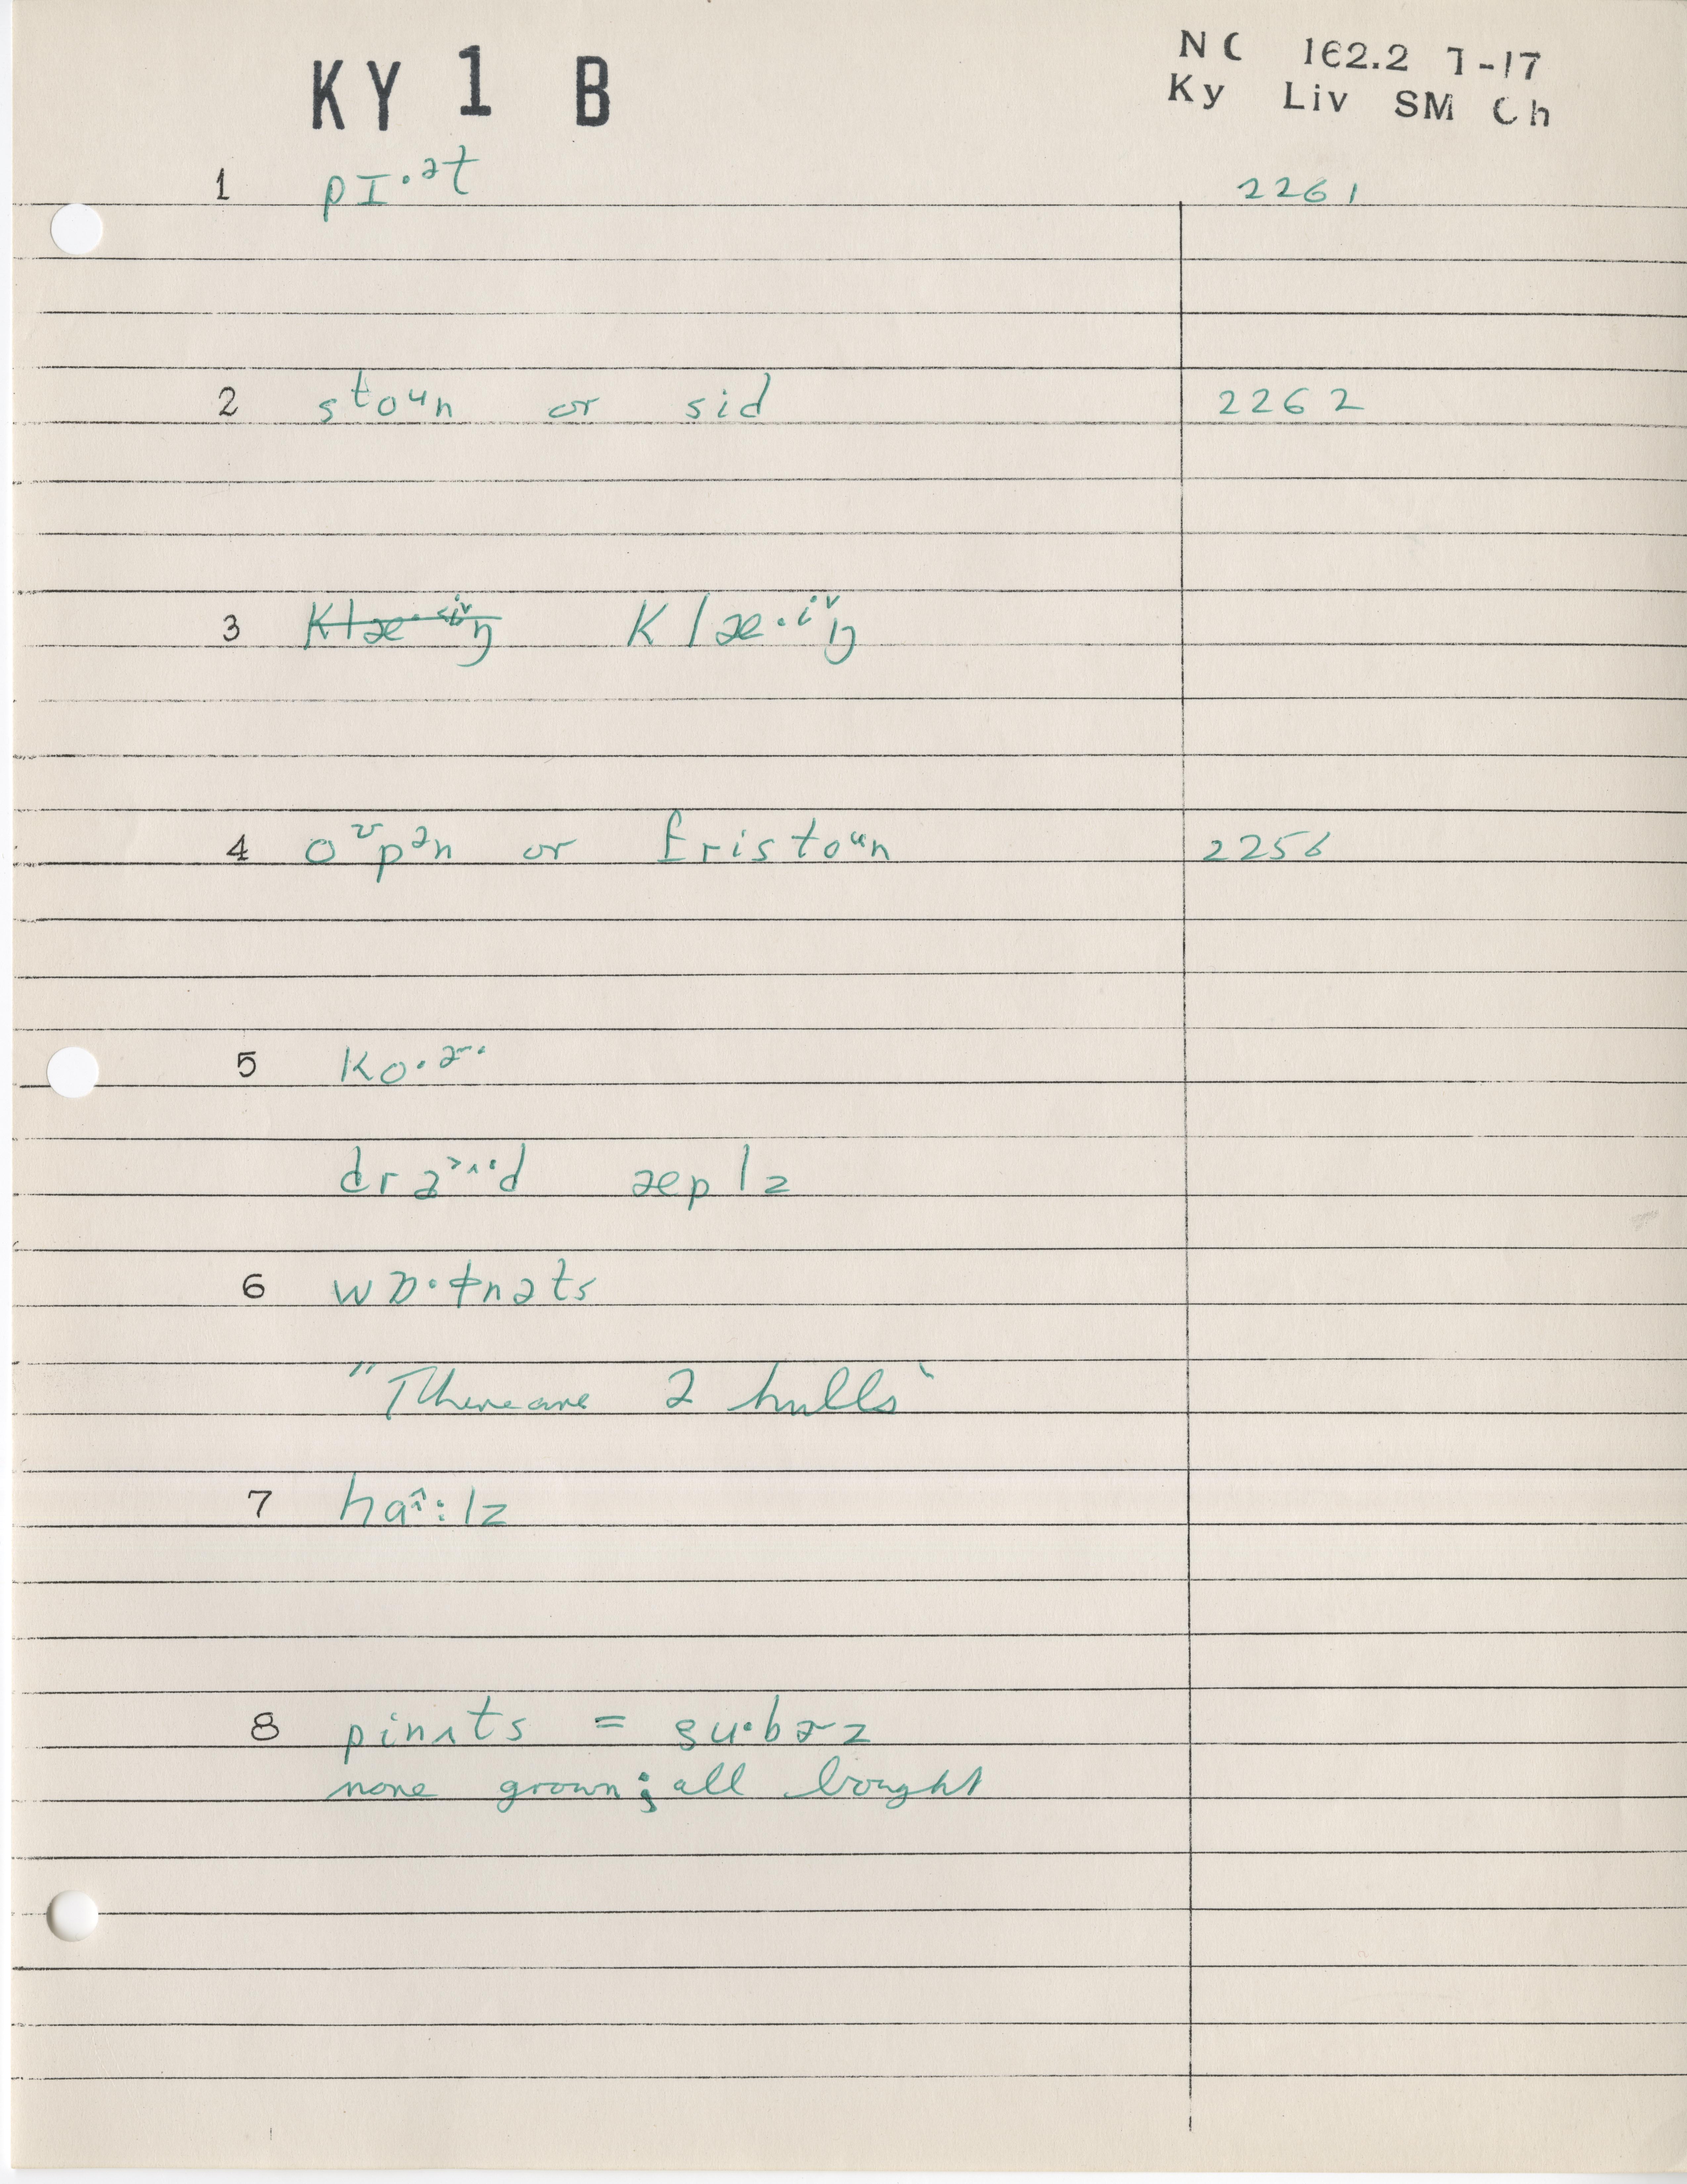 KY 1 B
NC 162.2 7-17
Ky Liv SM Ch
1 pɪ·ᵊt 2261
2 stoᵘn or sid 2262
3 ~~klæ·ⁱŋ~~ klæ·ⁱ˅ŋ
4 o˅pᵊn or fristoᵘn 2256
5 ko·ɚ·
draɪ·d æplz
6 wɒ·ɫnəts
"There are 2 hulls"
7 haɪ:lz
8 pinʌts = gu·bɚz
none grown; all bought